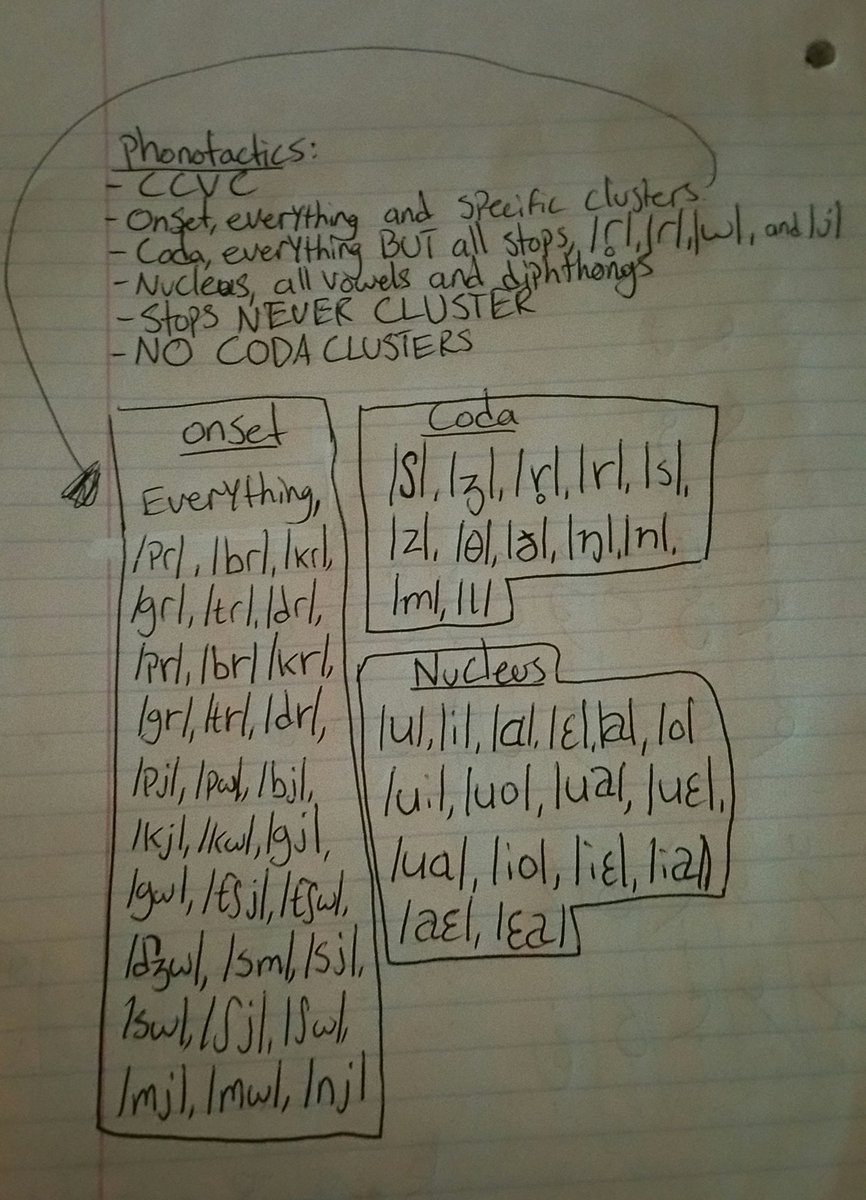 Phonotactics:
- CCVC
- Onset, everything and specific clusters.
- Coda, everything BUT all stops, /r̥/, /r/, /w/, and /j/
- Nucleus, all vowels and diphthongs
- Stops NEVER CLUSTER
- NO CODA CLUSTERS
onset
Everything,
/pr/, /br/, /kr/,
/gr/, /tr/, /dr/,
/pr/, /br/ /kr/,
/gr/, /tr/, /dr/,
/pj/, /pw/, /bj/,
/kj/, /kw/, /gj/,
/gw/, /tʃj/, /tʃw/,
/dʒw/, /sm/, /sj/,
/sw/, /ʃj/, /ʃw/,
/mj/, /mw/, /nj/
Coda
/ʃ/, /ʒ/, /r̥/, /r/, /s/,
/z/, /θ/, /ð/, /ŋ/, /n/,
/m/, /l/
Nucleus
/u/, /i/, /a/, /ɛ/, /ə/, /o/
/ui/, /uo/, /uə/, /uɛ/,
/ua/, /io/, /iɛ/, /iə/
/əɛ/, /ɛə/